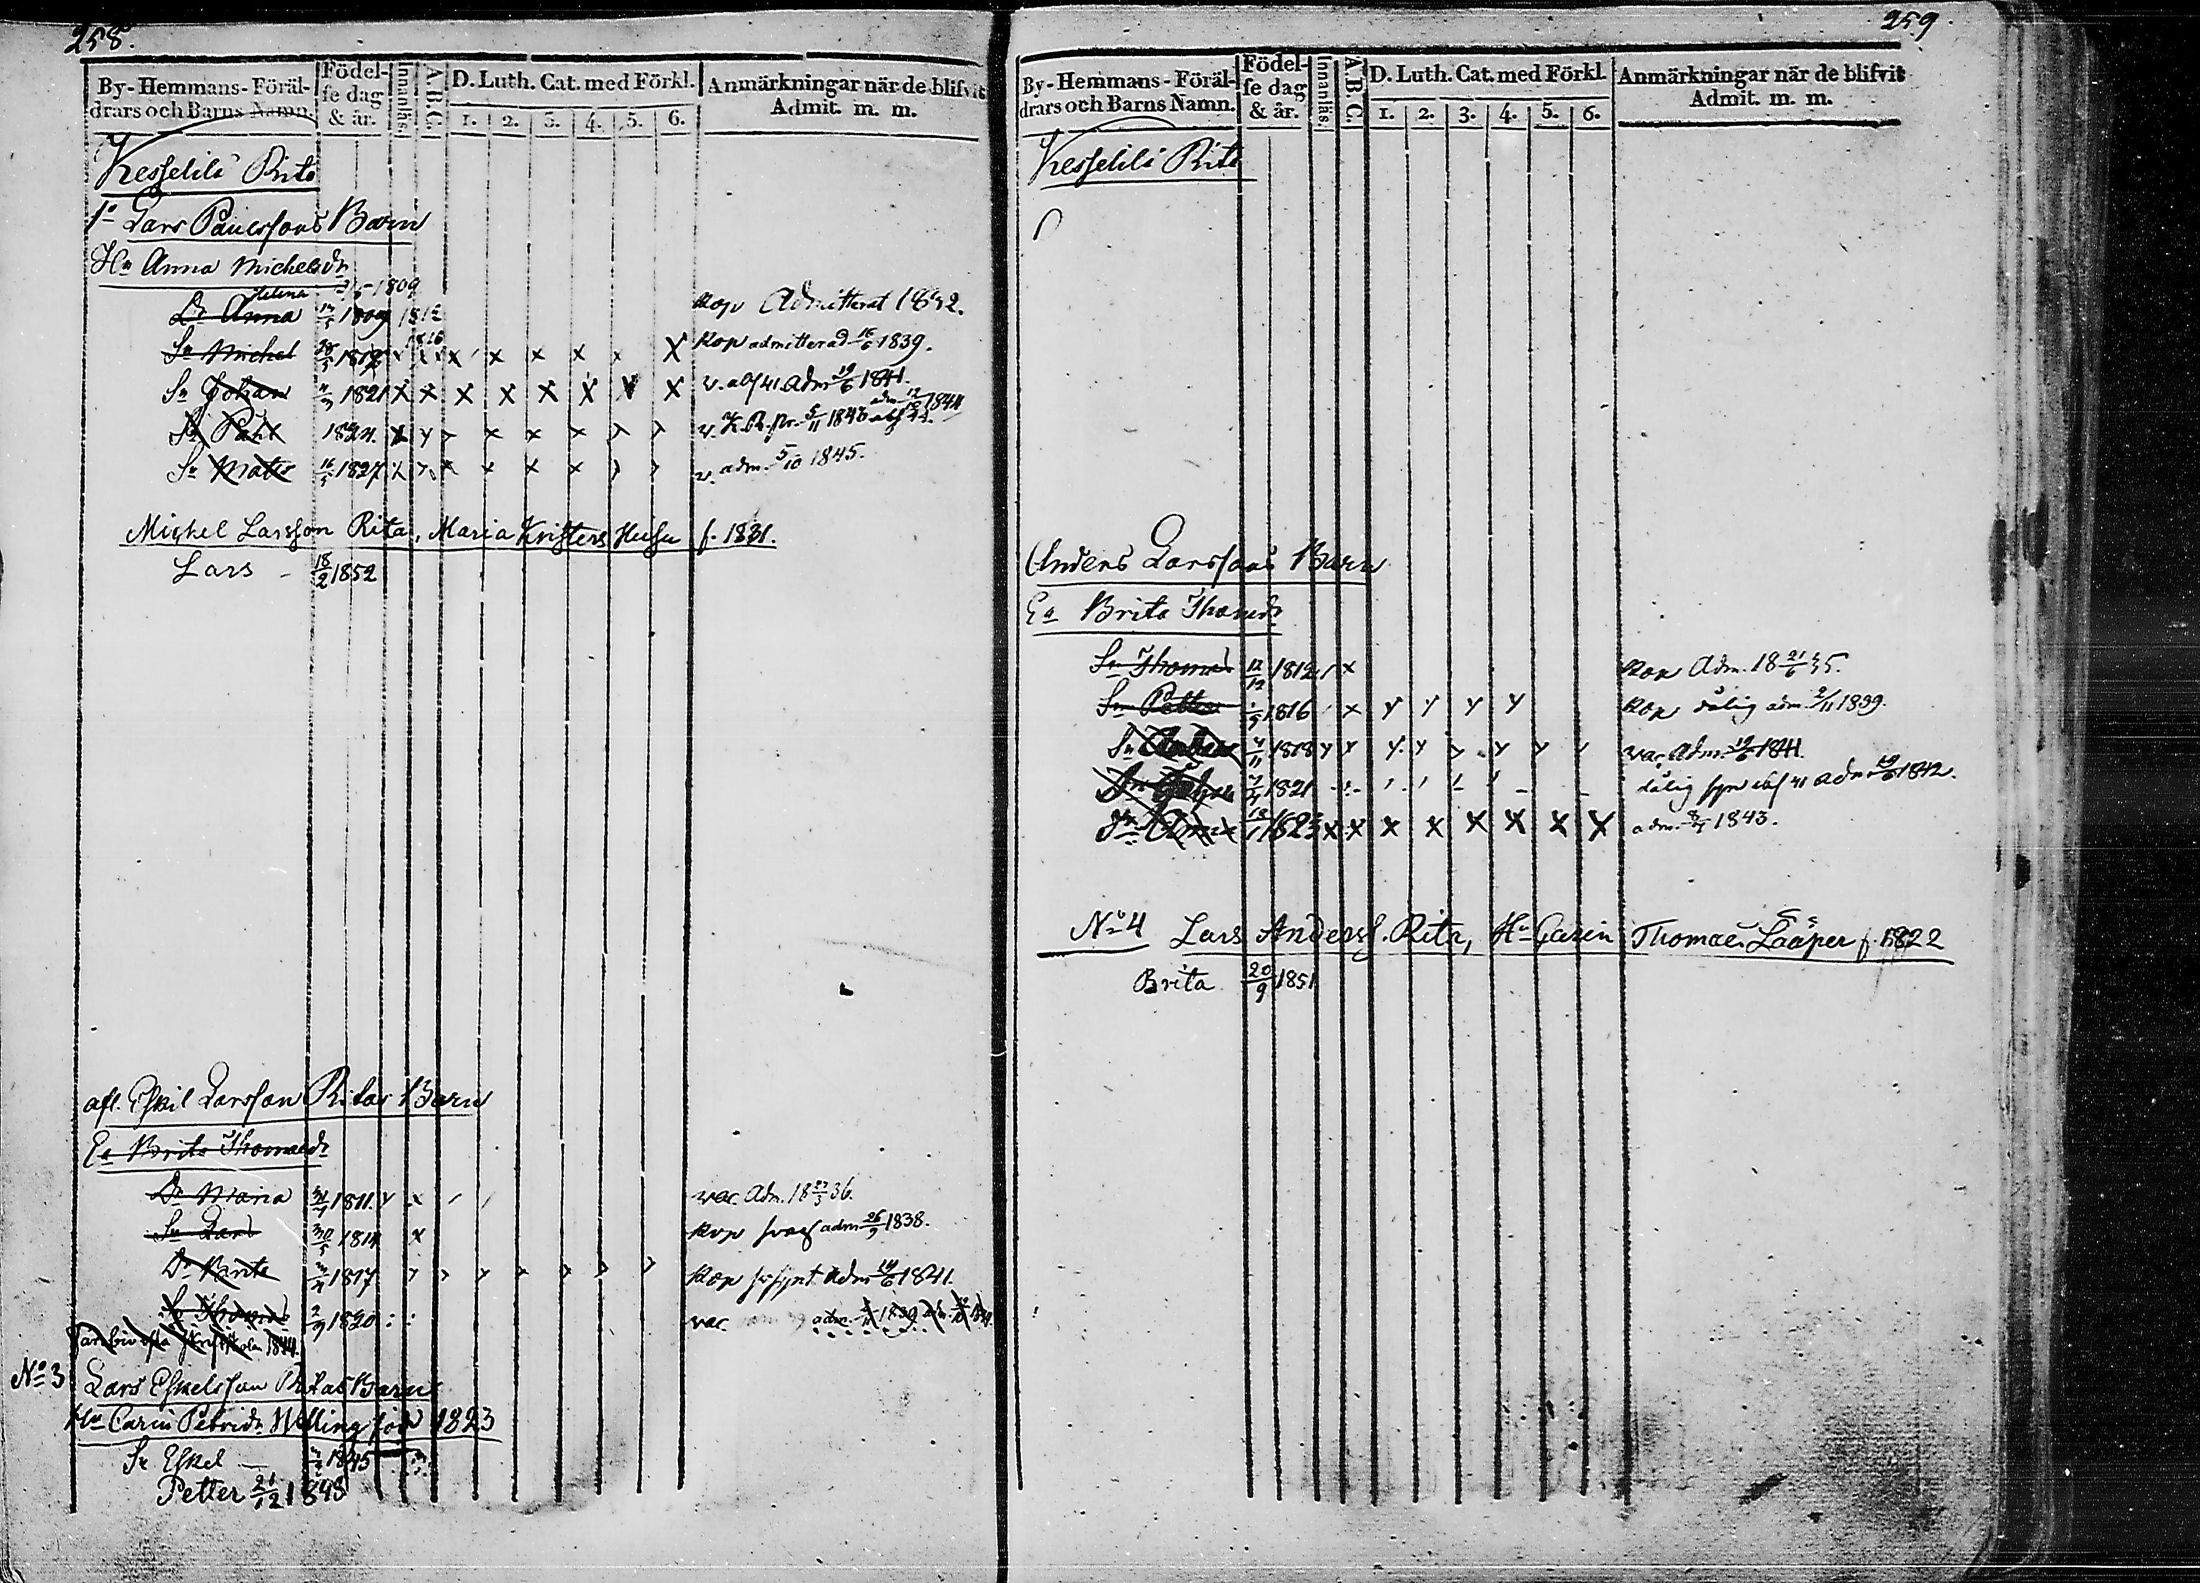 258.
By-Hemmans-Föräl-
drars och Barns Namn.
Födel-
se dag
& år.
Innanläs.
A.B.C.
D. Luth. Cat. med Förkl.
1. 2. 3. 4. 5. 6.
Anmärkningar när de blifvit
Admit. m. m.
Kesselilä Rita
Lars Paulssons Barn
Hu Anna Michelsdr
Helena 1809
Dr Anna 1809 1812 Kop Admitterat 1832.
Sn Michel 1816 x x x x x x x Kop admitterad 16/6 1839.
Sn Johan 1821 x x x x x x x x v. abs 41. Adm 19/6 1841.
Sn Påhl 1824. x x x x v. 5/11 1843 adm 1844
Sn Mats 16/5 1827 x x x x v. adm. 5/10 1845.
Michel Larsson Rita, Maria Kristers Heisu f. 1831.
Lars - 18/2 1852
afl. Eskil Larsson Ritas Barn
Ea Brita Thomaedr
Dr Maria 1811. x var. Adm. 18 36.
Sn Lars 30/5 1814 x Kop svag adm 26/9 1838.
Dr Brita 1817 Kop Adm 1841.
Sn Thomas 2/9 1820 var. adm. 1839
1844.
No 3 Lars Eskelsson Ritas Barn
Hu Carin Petridr Welling född 1823
Sn Eskel - 1845
Petter 21/12 1848
259.
By-Hemmans-Föräl-
drars och Barns Namn.
Födel-
se dag
& år.
Innanläs.
A.B.C.
D. Luth. Cat. med Förkl.
1. 2. 3. 4. 5. 6.
Anmärkningar när de blifvit
Admit. m. m.
Kesselilä Rita
Anders Larssons Barn
Ea Brita Thomdr
Sn Thomas 12/12 1812 / x Kop Adm. 18 21/6 35.
Sn Petter 1816 x Kop dålig adm. 2/11 1839.
Sn Anders 4/11 1818 var. Adm. 19/6 1841.
Sn Johan 1821 dålig syn abs 41 adm 19/6 1842.
1823 x x x x x x x x adm. 1843.
No 4 Lars Anderss. Rita, Hu Carin Thomae Lääper f. 1822
Brita 20/9 1851